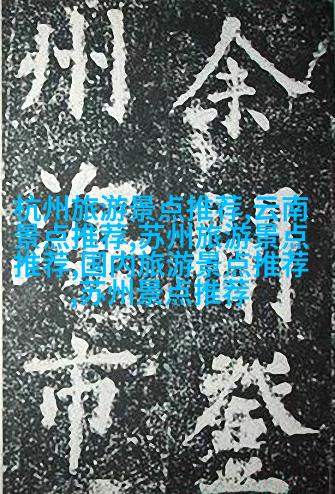 余聞登
州海市
杭州旅游景点推荐,云南
景点推荐,苏州旅游景点
推荐,国内旅游景点推荐
,苏州景点推荐